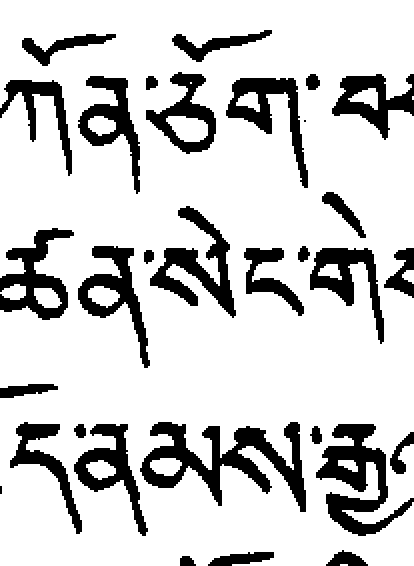 ཀོན་ཅོག་
ཚན་སེང་གེ
ད་ནམས་རྒྱ